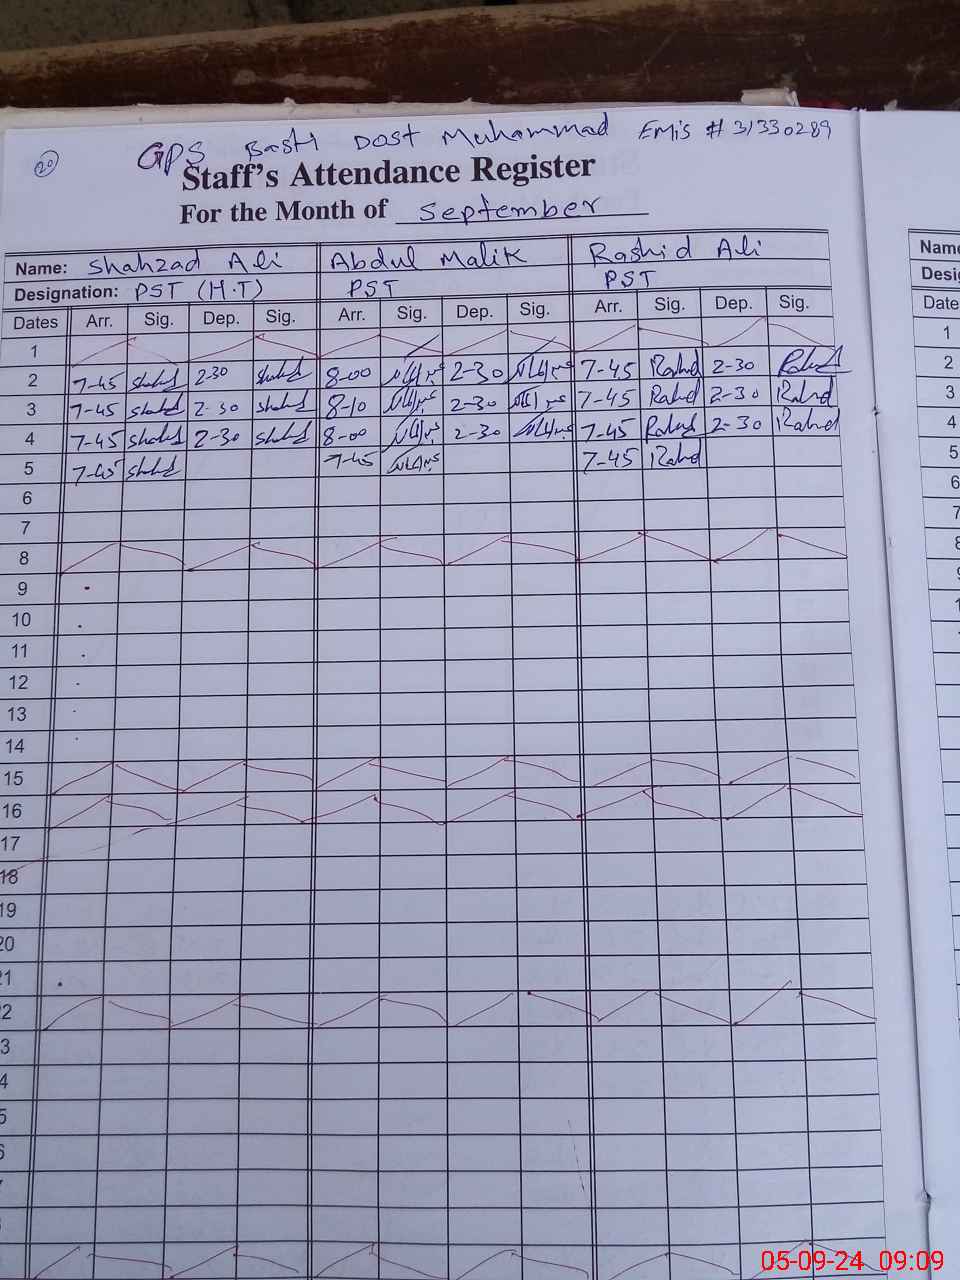 20
GPS Basti Dost Muhammad EMIS # 31330289
Staff's Attendance Register
For the Month of September
Name: Shahzad Ali Abdul Malik Rashid Ali Name
Designation: PST (H.T) PST PST Desig
Dates Arr. Sig. Dep. Sig. Arr. Sig. Dep. Sig. Arr. Sig. Dep. Sig. Date
1 1
2 7-45 Shahd 2-30 Shahd 8-00 عبدالمالک 2-30 عبدالمالک 7-45 Rashid 2-30 Rashid 2
3 7-45 Shahd 2-30 Shahd 8-10 عبدالمالک 2-30 عبدالمالک 7-45 Rashid 2-30 Rashid 3
4 7-45 Shahd 2-30 Shahd 8-00 عبدالمالک 2-30 عبدالمالک 7-45 Rashid 2-30 Rashid 4
5 7-45 Shahd 7-45 عبدالمالک 7-45 Rashid 5
6 6
7 7
8 8
9 9
10 1
11
12
13
14
15
16
17
18
19
20
21
2
3
4
5
6
05-09-24 09:09